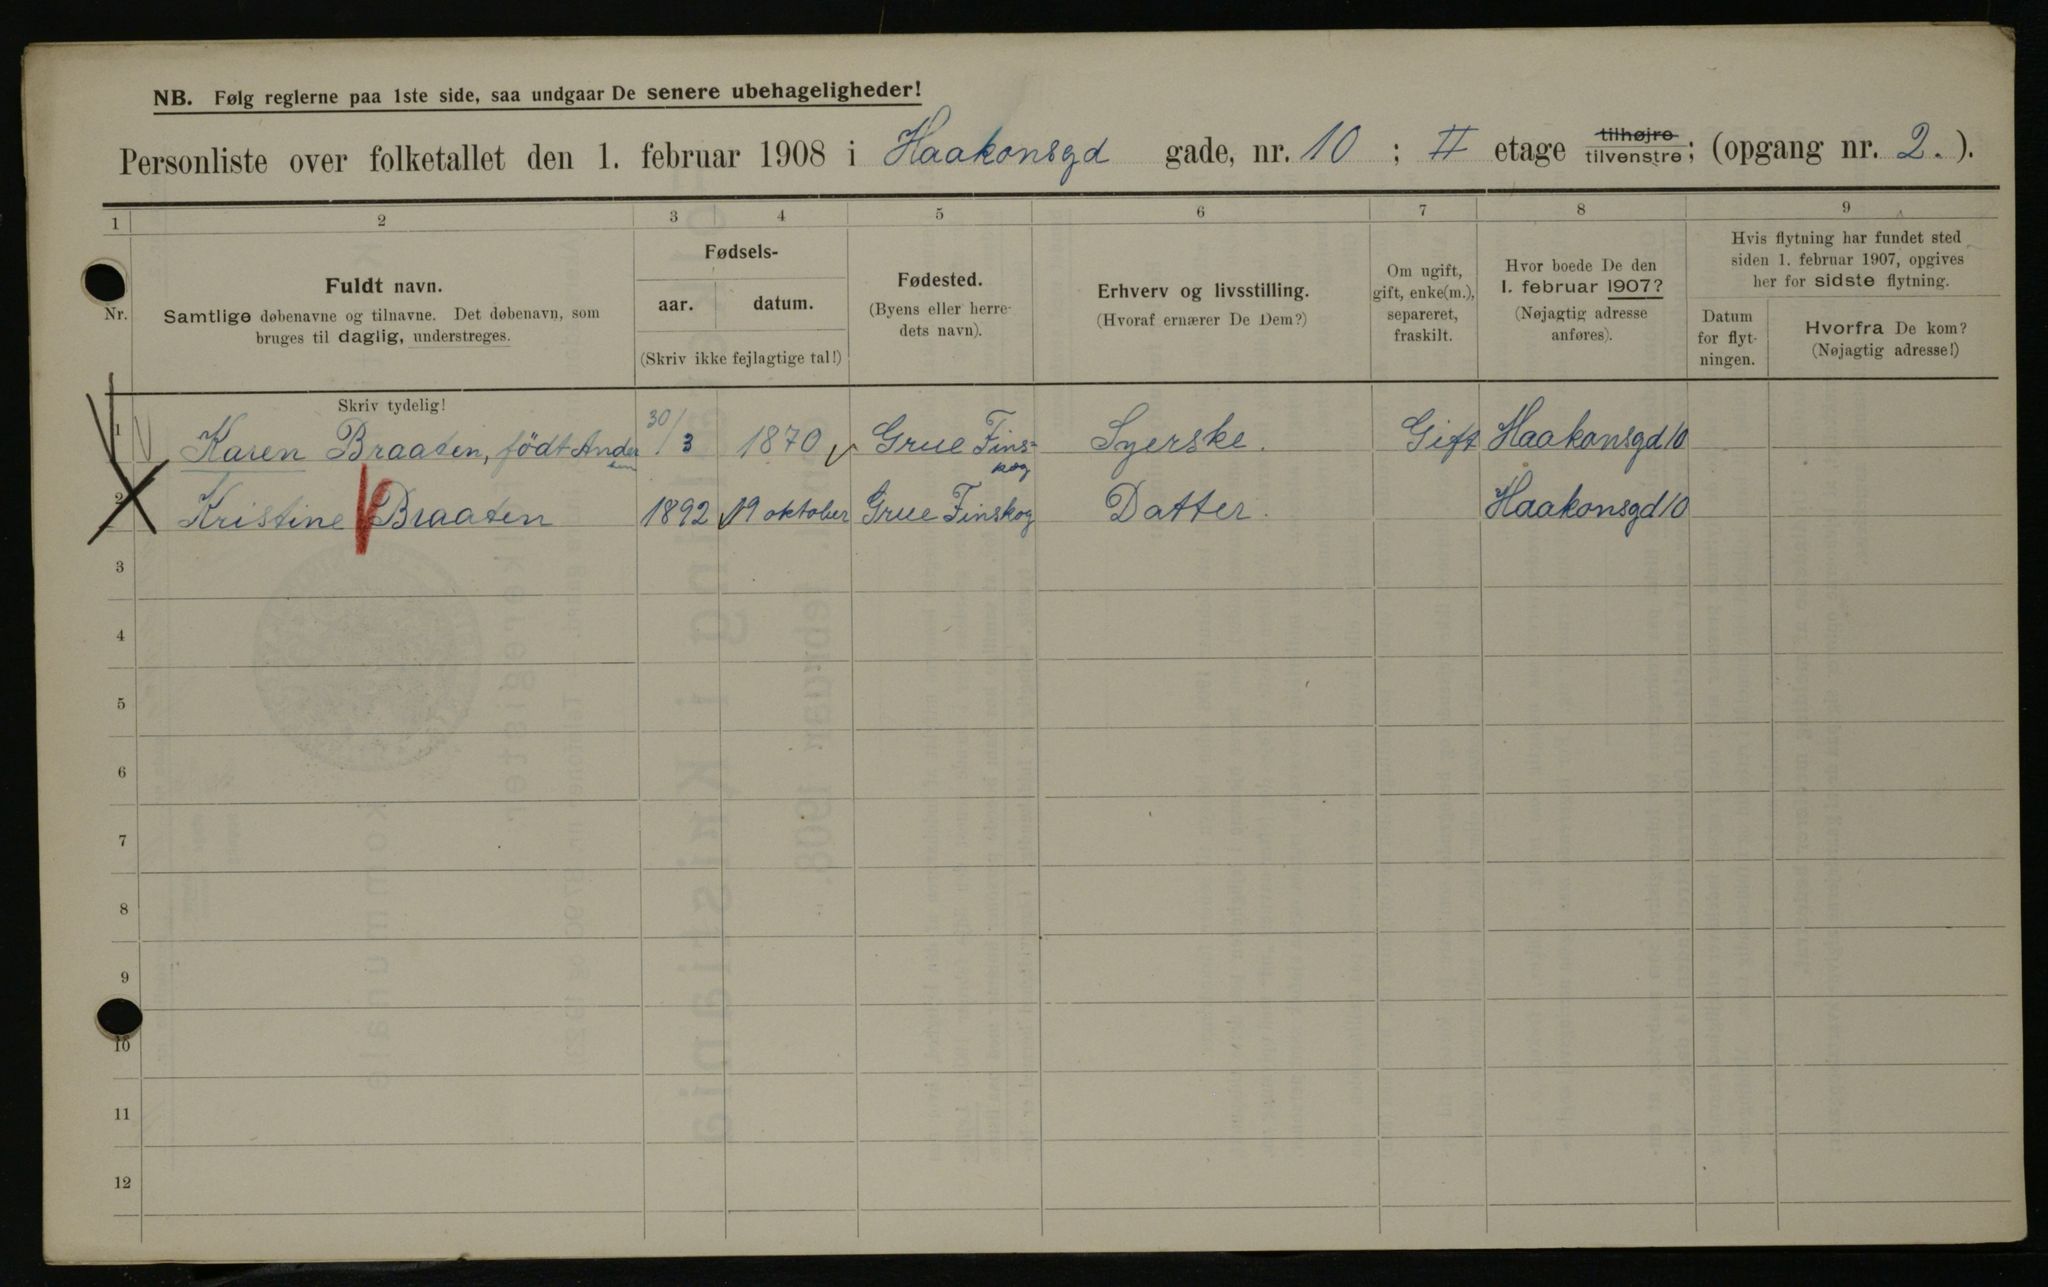 NB. Følg reglerne paa 1ste side, saa undgaar De senere ubehageligheder!
Personliste over folketallet den 1. februar 1908 i Haakonsgd gade, nr. 10 ; II etage tilhøjre tilvenstre; (opgang nr. 2.).
1 2 3 4 5 6 7 8 9
Nr.
Fuldt navn.
Samtlige døbenavne og tilnavne. Det døbenavn, som
bruges til daglig, understreges.
Fødsels-
aar. datum.
(Skriv ikke fejlagtige tal!)
Fødested.
(Byens eller herre-
dets navn).
Erhverv og livsstilling.
(Hvoraf ernærer De Dem?)
Om ugift,
gift, enke(m.),
separeret,
fraskilt.
Hvor boede De den
1. februar 1907?
(Nøjagtig adresse
anføres).
Hvis flytning har fundet sted
siden 1. februar 1907, opgives
her for sidste flytning.
Datum
for flyt-
ningen.
Hvorfra De kom?
(Nøjagtig adresse!)
Skriv tydelig!
1 Karen Braaten, födt Ander 30/3 1870 Grue Fins= Syerske. Gift Haakonsgd 10
sen kog
2 Kristine Braaten 1892 19 oktober Grue Finskog Datter. Haakonsgd 10
3
4
5
6
7
8
9
10
11
12